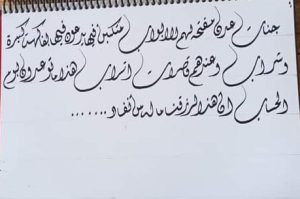 جنات عدن مفتحة لهم الابواب متكئين فيها يدعون فيها بفاكهة كثيرة
وشراب وعندهم قاصرات اتراب هذا ما توعدون ليوم
الحساب ان هذا لرزقنا ماله من نفاد ......